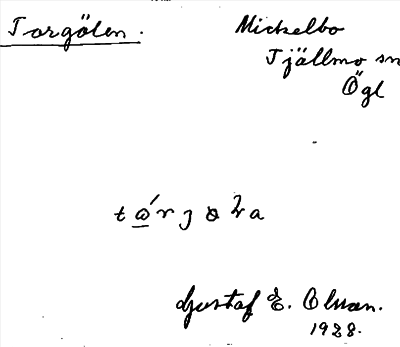 Torgölen.
Mickelbo
Tjällmo sn
Ögl
Gustaf E. Olsson.
1928.